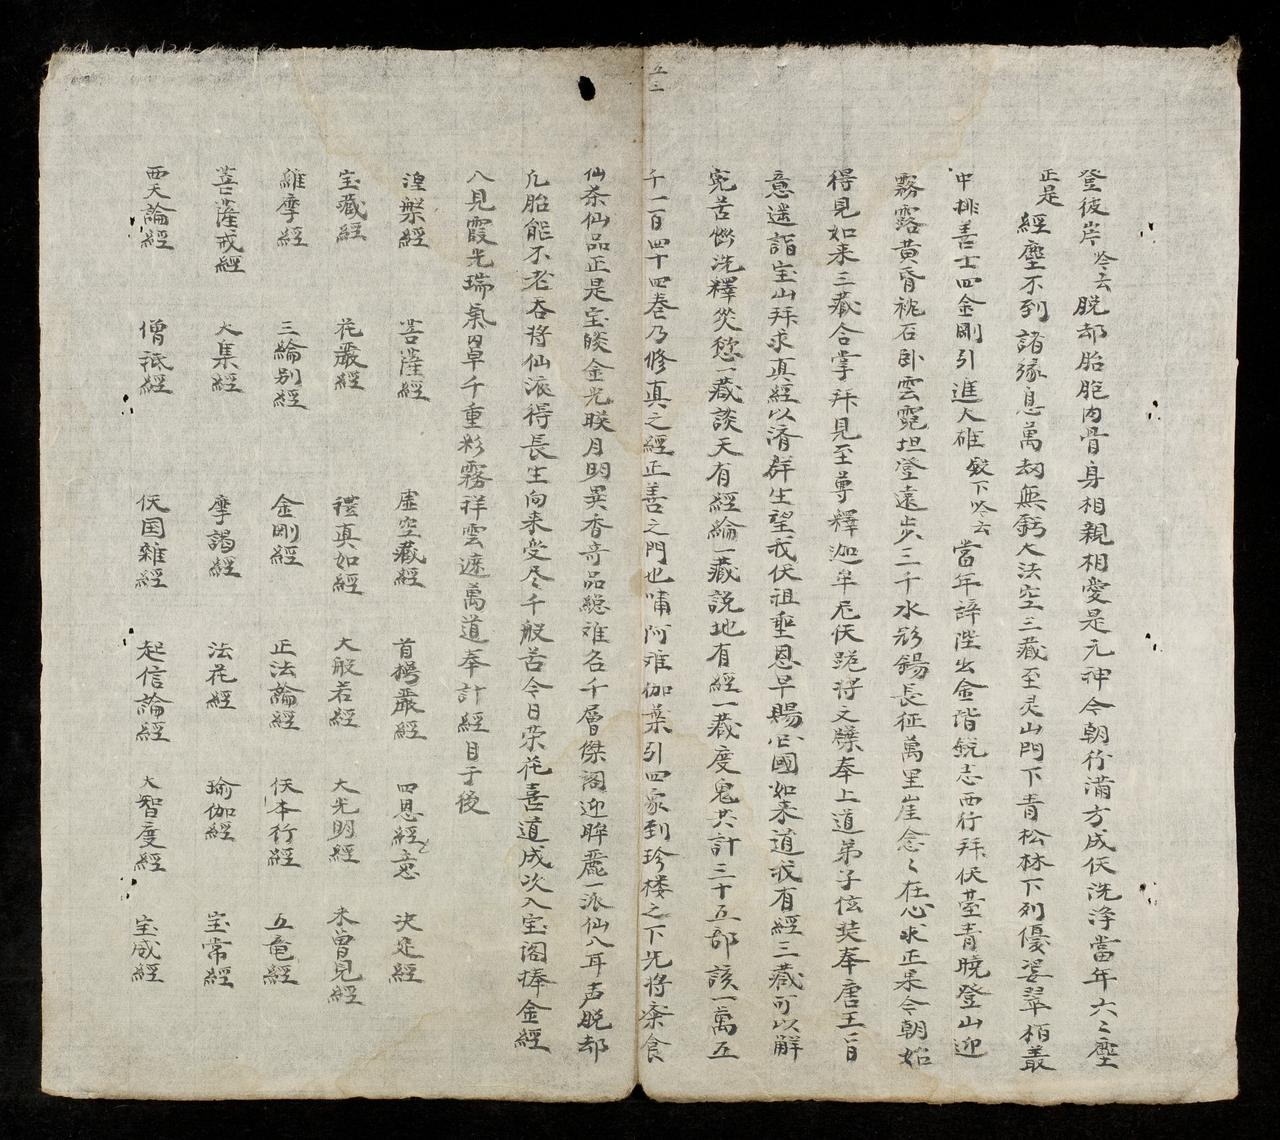 登彼岸吟云脱却胎胞肉骨身相親相愛是元神今朝行滿方成仸洗净當年六〻塵
正是經塵不到諸緣息萬刼無虧大法空三藏至灵山門下青松林下列優婆翠栢叢
中排善士四金剛引進大雄殿下吟云當年辞陛出金階銳志西行拜仸臺青曉登山迎
霧露黄昏枕石臥雲霓担登遠步三千水杉錫長征萬里崖念〻在心求正果今朝始
得見如来三藏合掌拜見至尊釋迦牟尼仸跪將文牒奉上道弟子玄奘奉唐王旨
意遥詣宝山拜求真經以濟群生望我仸祖聖恩早賜囬國如来道我有經三藏可以解
寃苦愆洗釋灾愆一藏談天有經綸一藏説地有經一藏度鬼共計三十五部該一萬五
千一百四十四卷乃修真之經正善之門也哺阿难伽葉引四衆到珍楼之下先將斋食
仙茶仙品正是宝燄金光映月明異香奇品総难名千層傑阁迎眸麗一派仙八耳声脱却
凡胎能不老吞將仙液得長生向来受尽千般苦今日荣花喜道成次入宝阁捧金經
八見霞光瑞氣罩千重彩霧祥雲遮萬道奉計經目于後
湼槃經 菩薩經 虚空藏經 首楞嚴經 四恩經意 决定經
宝藏經 花嚴經 禮真如經 大般若經 大光明經 未曾見經
維摩經 三綸别經 金剛經 正法論經 仸本行經 五竜經
菩薩戒經 大集經 摩謁經 法花經 瑜伽經 宝常經
西天論經 僧祗經 仸国雜經 起信論經 大智度經 宝威經
五二